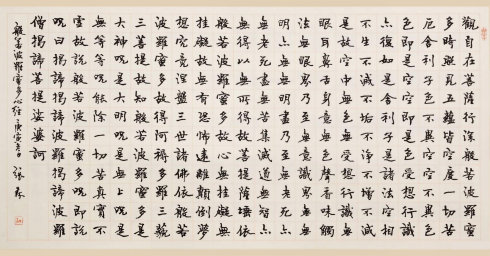 觀自在菩薩行深般若波羅蜜
多時照見五蘊皆空度一切苦
厄舍利子色不異空空不異色
色即是空空即是色受想行識
亦復如是舍利子是諸法空相
不生不滅不垢不淨不增不減
是故空中無色無受想行識無
眼耳鼻舌身意無色聲香味觸
法無眼界乃至無意識界無無
明亦無無明盡乃至無老死亦
無老死盡無苦集滅道無智亦
無得以無所得故菩提薩埵依
般若波羅蜜多故心無罣礙無
罣礙故無有恐怖遠離顛倒夢
想究竟涅槃三世諸佛依般若
波羅蜜多故得阿耨多羅三藐
三菩提故知般若波羅蜜多是
大神咒是大明咒是無上咒是
無等等咒能除一切苦真實不
虛故說般若波羅蜜多咒即說
咒曰揭諦揭諦波羅揭諦波羅
僧揭諦菩提娑婆訶
般若波羅蜜多心經